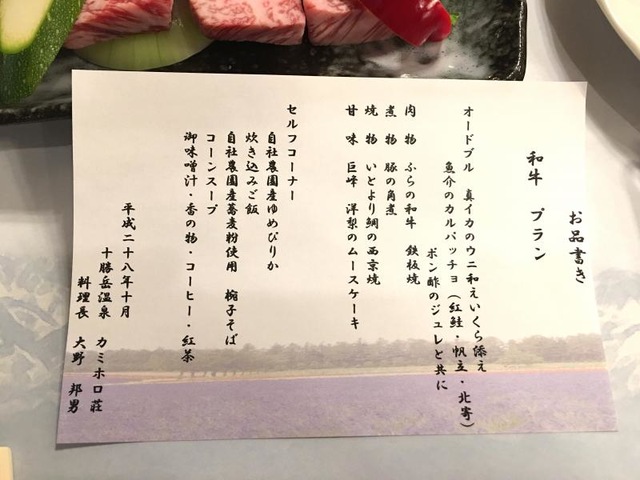 お品書き
和牛 プラン
オードブル 真イカのウニ和えいくら添え
魚介のカルパッチョ(紅鮭・帆立・北寄)
ポン酢のジュレと共に
肉 物 ふらの和牛 鉄板焼
煮 物 豚の角煮
焼 物 いとより鯛の西京焼
甘 味 巨峰 洋梨のムースケーキ
セルフコーナー
自社農園産ゆめぴりか
炊き込みご飯
自社農園産蕎麦粉使用 椀子そば
コーンスープ
御味噌汁・香の物・コーヒー・紅茶
平成二十八年十月
十勝岳温泉 カミホロ荘
料理長 大野 邦男